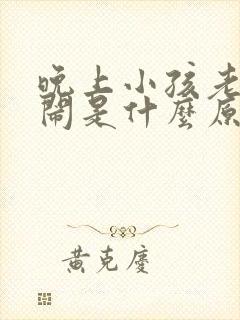 晚上小孩老
鬧是什麼原
黃克慶